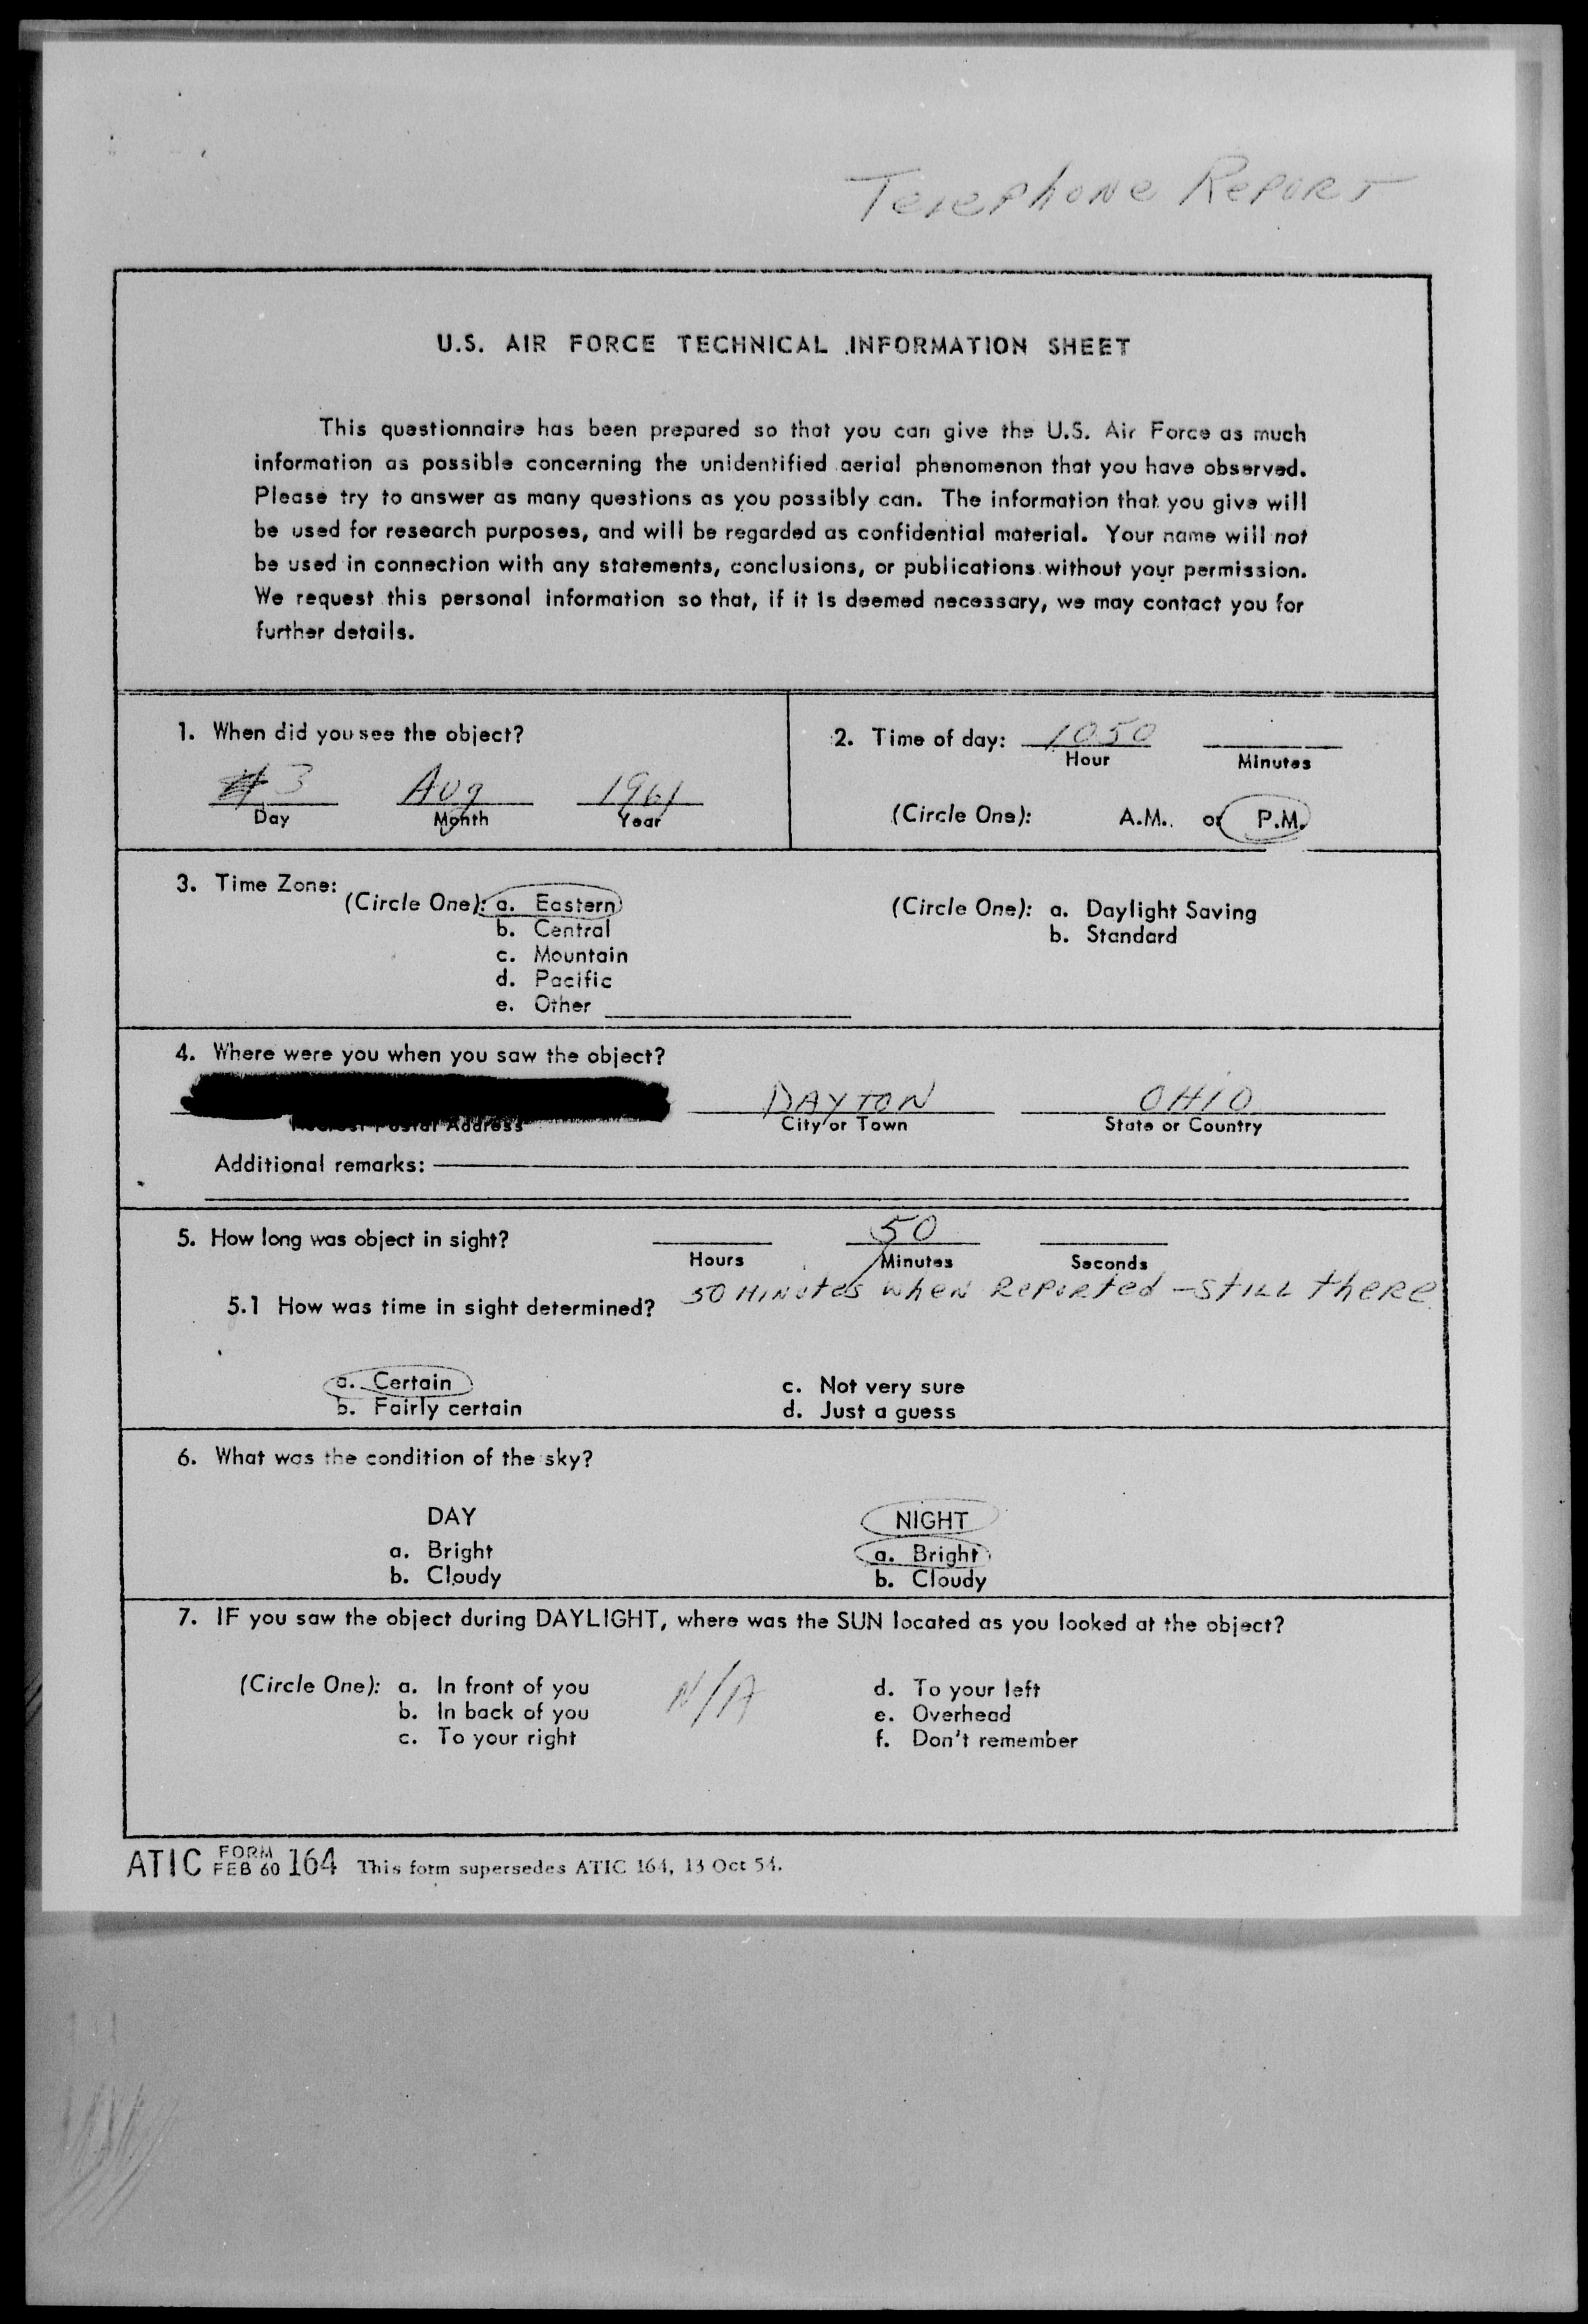 Telephone Report
U.S. AIR FORCE TECHNICAL INFORMATION SHEET
This questionnaire has been prepared so that you can give the U.S. Air Force as much
information as possible concerning the unidentified aerial phenomenon that you have observed.
Please try to answer as many questions as you possibly can. The information that you give will
be used for research purposes, and will be regarded as confidential material. Your name will not
be used in connection with any statements, conclusions, or publications without your permission.
We request this personal information so that, if it is deemed necessary, we may contact you for
further details.
1. When did you see the object?
3 Aug 1961
Day Month Year
2. Time of day: 1050
Hour Minutes
(Circle One): A.M. or P.M.
3. Time Zone:
(Circle One): a. Eastern
b. Central
c. Mountain
d. Pacific
e. Other
(Circle One): a. Daylight Saving
b. Standard
4. Where were you when you saw the object?
DAYTON OHIO
Nearest Postal Address City or Town State or Country
Additional remarks:
5. How long was object in sight? 50
Hours Minutes Seconds
50 Minutes when Reported - STILL there
5.1 How was time in sight determined?
a. Certain c. Not very sure
b. Fairly certain d. Just a guess
6. What was the condition of the sky?
DAY NIGHT
a. Bright a. Bright
b. Cloudy b. Cloudy
7. IF you saw the object during DAYLIGHT, where was the SUN located as you looked at the object?
(Circle One): a. In front of you N/A d. To your left
b. In back of you e. Overhead
c. To your right f. Don't remember
ATIC FORM FEB 60 164 This form supersedes ATIC 164, 13 Oct 54.